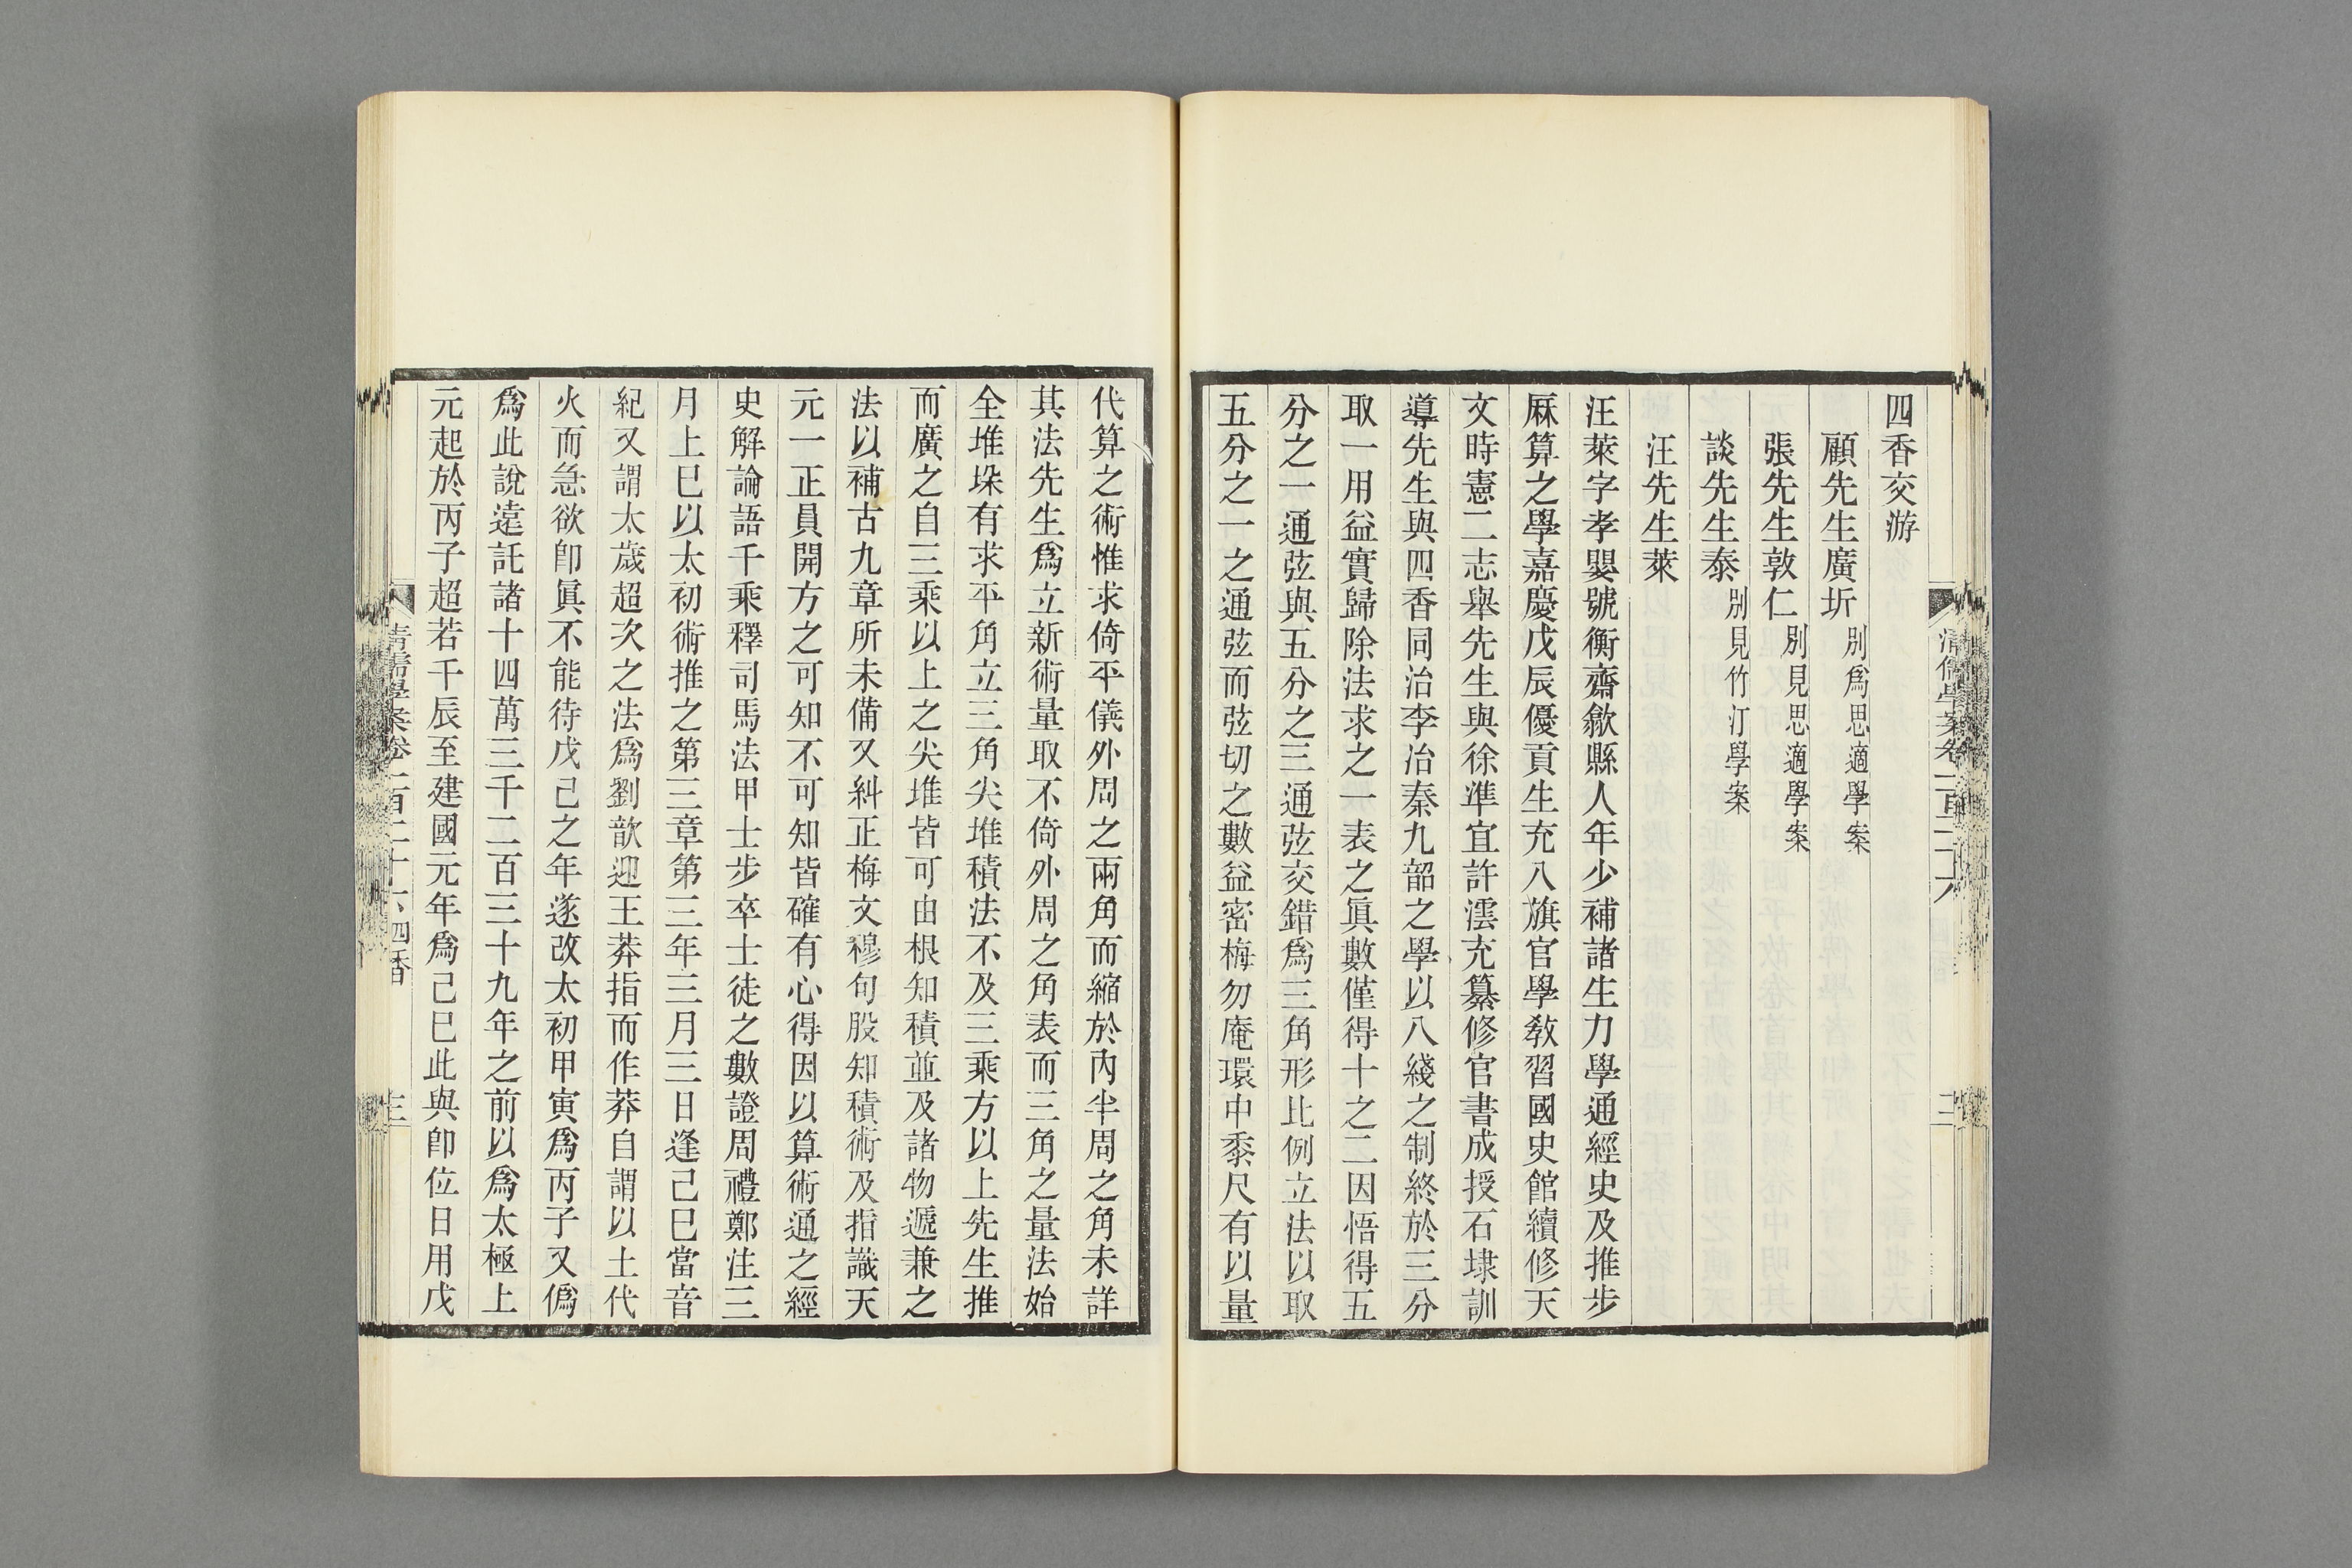 四香交游
顧先生廣圻 別爲思適學案
張先生敦仁 別見思適學案
談先生泰 別見竹汀學案
汪先生萊
汪萊字孝嬰號衡齋歙縣人年少補諸生力學通經史及推步
厤算之學嘉慶戊辰優貢生充八旗官學敎習國史館續修天
文時憲二志舉先生與徐準宜許澐充纂修官書成授石埭訓
導先生與四香同治李冶秦九韶之學以八綫之制終於三分
取一用益實歸除法求之一表之眞數僅得十之二因悟得五
分之一通弦與五分之三通弦交錯爲三角形比例立法以取
五分之一之通弦而弦切之數益密梅勿庵環中黍尺有以量
代算之術惟求倚平儀外周之兩角而縮於內半周之角未詳
其法先生爲立新術量取不倚外周之角表而三角之量法始
全堆垛有求平角立三角尖堆積法不及三乘方以上先生推
而廣之自三乘以上之尖堆皆可由根知積並及諸物遞兼之
法以補古九章所未備又糾正梅文穆句股知積術及指識天
元一正負開方之可知不可知皆確有心得因以算術通之經
史解論語千乘釋司馬法甲士步卒士徒之數證周禮鄭注三
月上巳以太初術推之第三章第三年三月三日逢己巳當音
紀又謂太歲超次之法爲劉歆迎王莽指而作莽自謂以土代
火而急欲卽眞不能待戊己之年遂改太初甲寅爲丙子又僞
爲此說遠託諸十四萬三千二百三十九年之前以爲太極上
元起於丙子超若干辰至建國元年爲己巳此與卽位日用戊
清儒學案卷一百二十六 四香